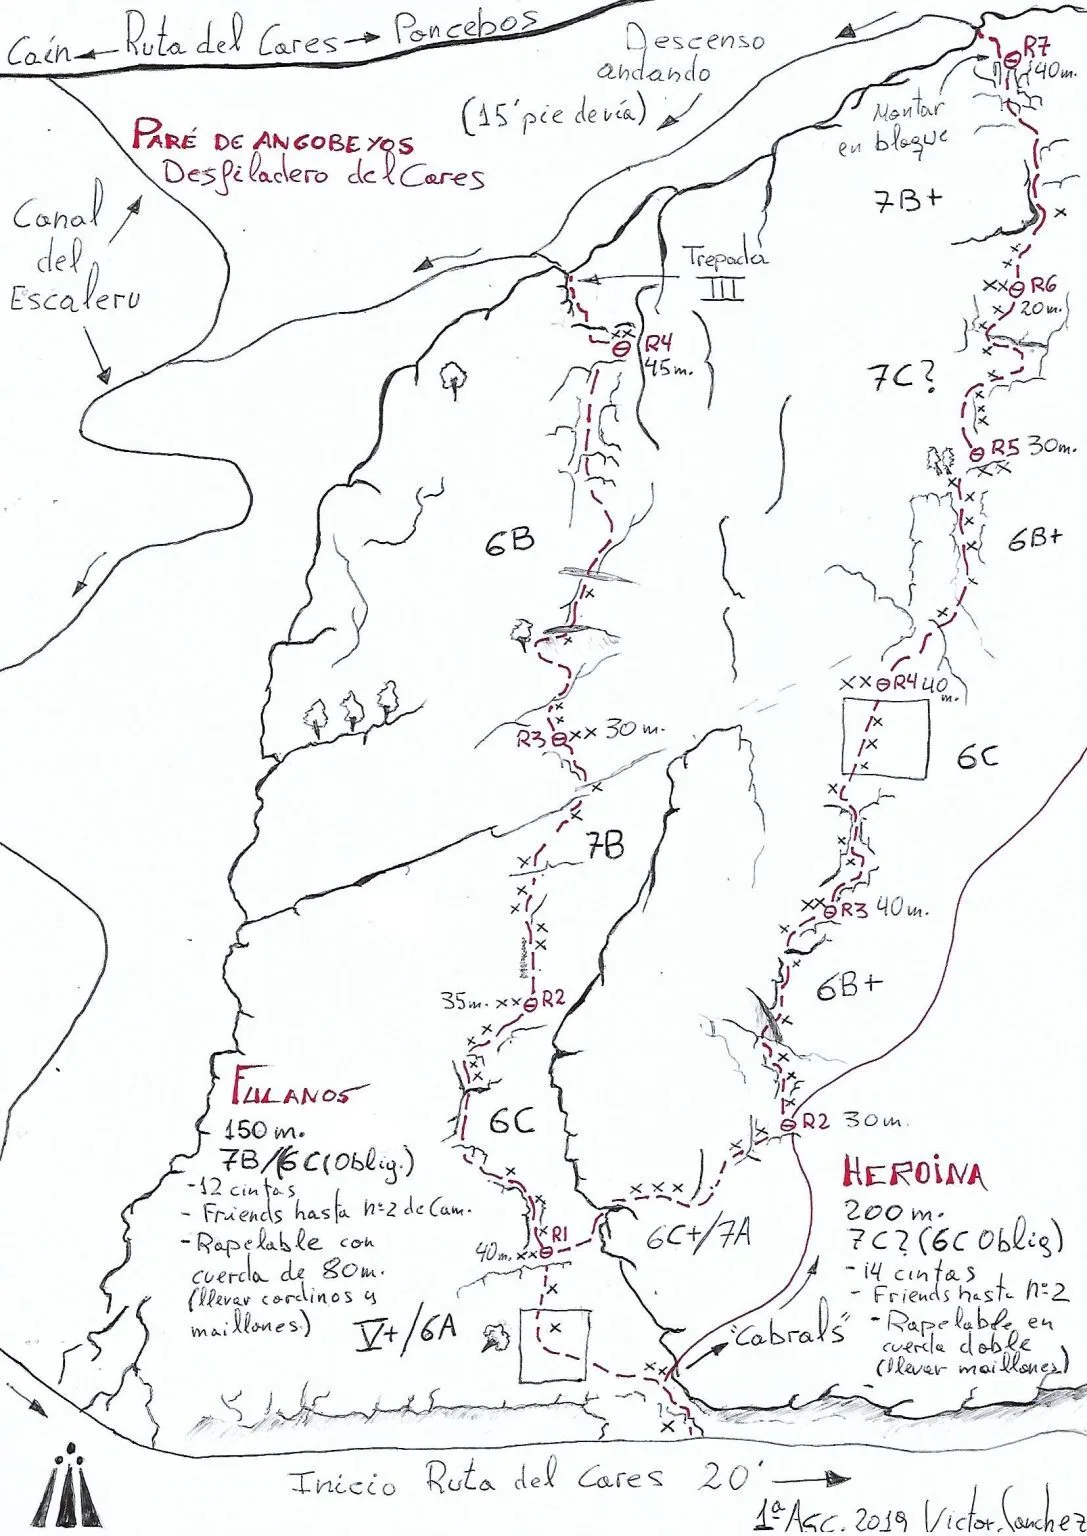 Caín ← Ruta del Cares → Poncebos
Descenso
andando
(15' pie de vía)
PARÉ DE ANGOBEYOS
Desfiladero del Cares
Canal
del
Escaleru
R7
40m.
Montar
en bloque
7B+
Trepada
III
R6
20m.
R4
45m.
7C?
R5 30m.
6B
6B+
R4 40
m.
R3 30m.
6C
7B
R3 40m.
6B+
35m. R2
FULANOS
150 m.
7B/6C (Oblig.)
-12 cintas
- Friends hasta nº2 de Cam.
- Rapelable con
cuerda de 80m.
(llevar cordinos y
maillones)
6C
R2 30m.
HEROINA
200 m.
7C? (6C Oblig)
- 14 cintas
- Friends hasta nº2
- Rapelable en
cuerda doble
(llevar maillones)
R1
40m.
6C+/7A
V+/6A
"Cabrals"
Inicio Ruta del Cares 20' →
1ª Asc. 2019 Victor Sanchez